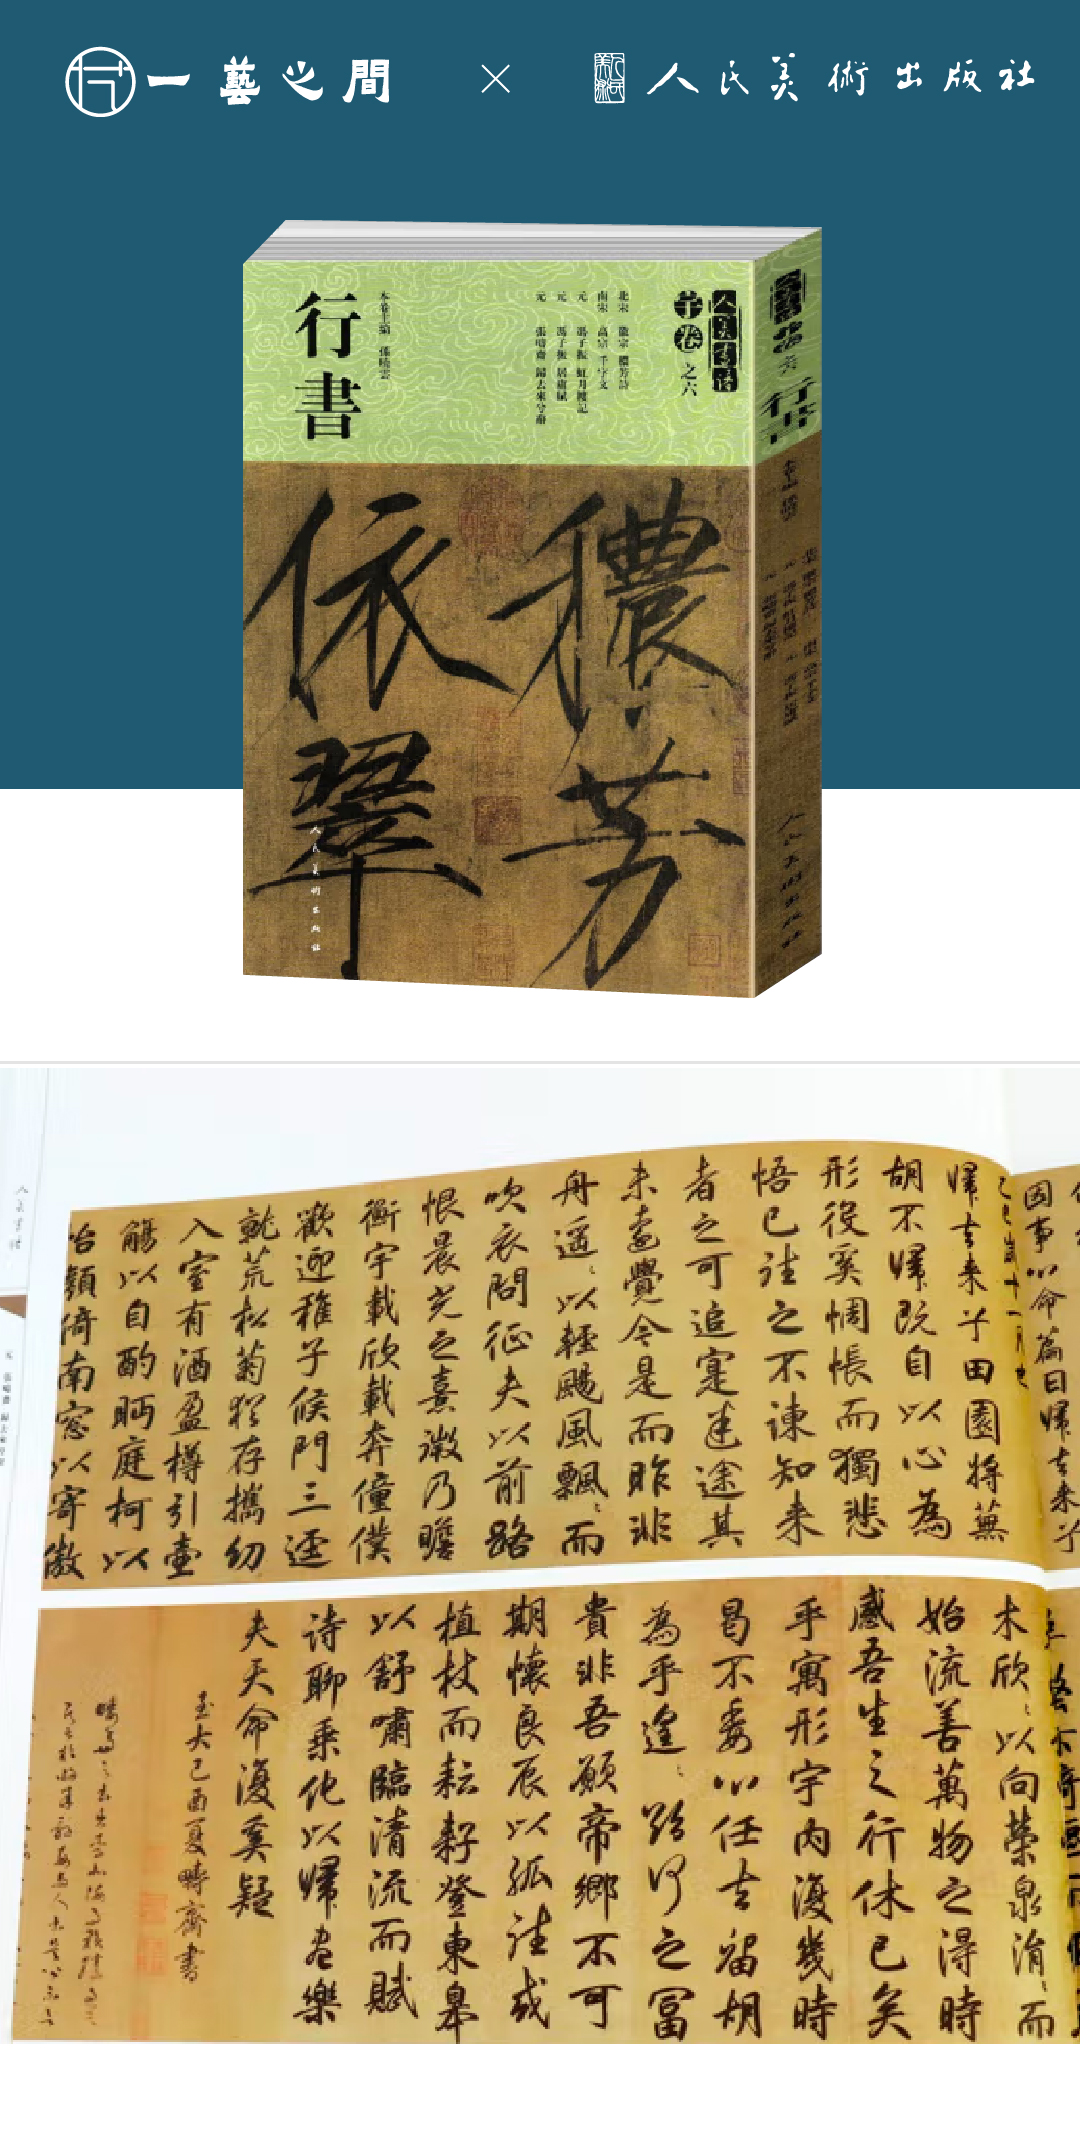 一藝之間
人民美術出版社
人美書譜
芥卷
之六
北宋 徽宗 穠芳詩
南宋 高宗 千字文
元 馮子振 虹月樓記
元 馮子振 居庸賦
元 張疇齋 歸去來兮辭
本卷主編 孫曉雲
行書
穠芳
依翠
人民美術出版社
行書
人民美術出版社
因事以命篇曰歸去来兮
歸去来兮田園將蕪
胡不歸既自以心為
形役奚惆悵而獨悲
悟已往之不諫知来
者之可追寔迷途其
未遠覺今是而昨非
舟遥〻以輕颺風飄〻而
吹衣問征夫以前路
恨晨光之熹微乃瞻
衡宇載欣載奔僮僕
歡迎稚子候門三逕
就荒松菊猶存攜幼
入室有酒盈樽引壺
觴以自酌眄庭柯以
怡顏倚南窓以寄傲
木欣〻以向榮泉涓〻而
始流善萬物之得時
感吾生之行休已矣
乎寓形宇内復幾時
曷不委心任去留胡
為乎遑〻欲何之冨
貴非吾願帝鄉不可
期懷良辰以孤往或
植杖而耘耔登東皋
以舒嘯臨清流而賦
诗聊乗化以歸盡樂
夫天命復奚疑
至大己酉夏疇齋書